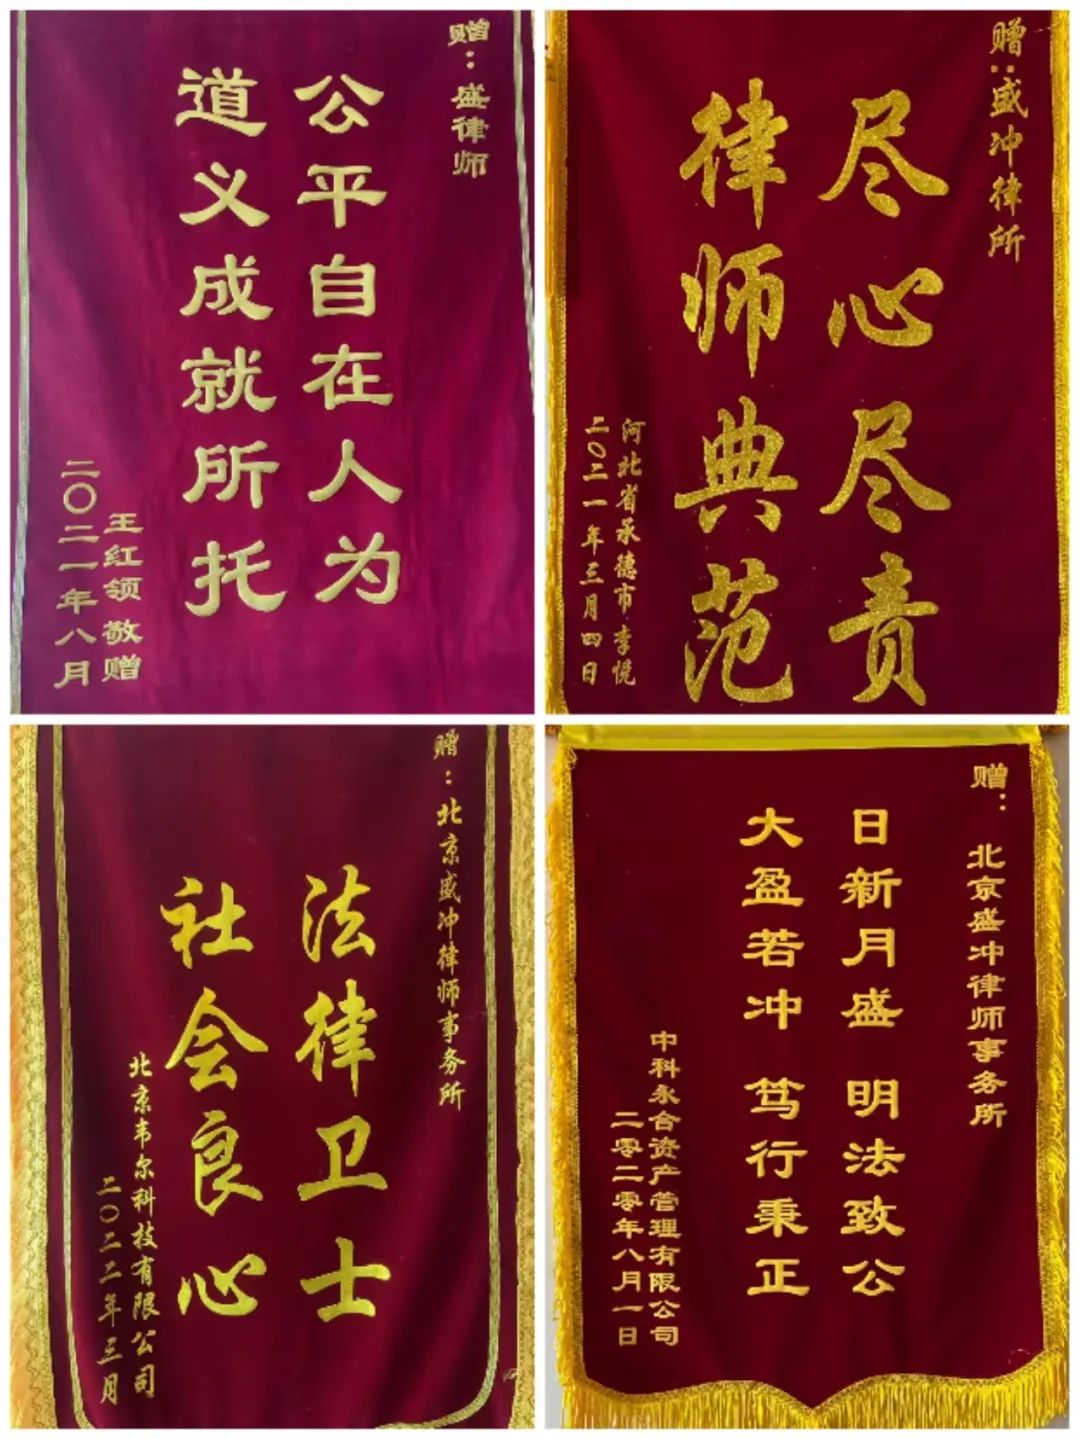 赠：盛律师
公平自在人为
道义成就所托
王红领敬赠
二〇二一年八月
赠：盛冲律所
尽心尽责
律师典范
河北省承德市李悦
二〇二一年三月四日
赠：北京盛冲律师事务所
法律卫士
社会良心
北京韦尔科技有限公司
二〇二二年三月
赠：北京盛冲律师事务所
日新月盛 明法致公
大盈若冲 笃行秉正
中科永合资产管理有限公司
二零二零年八月一日